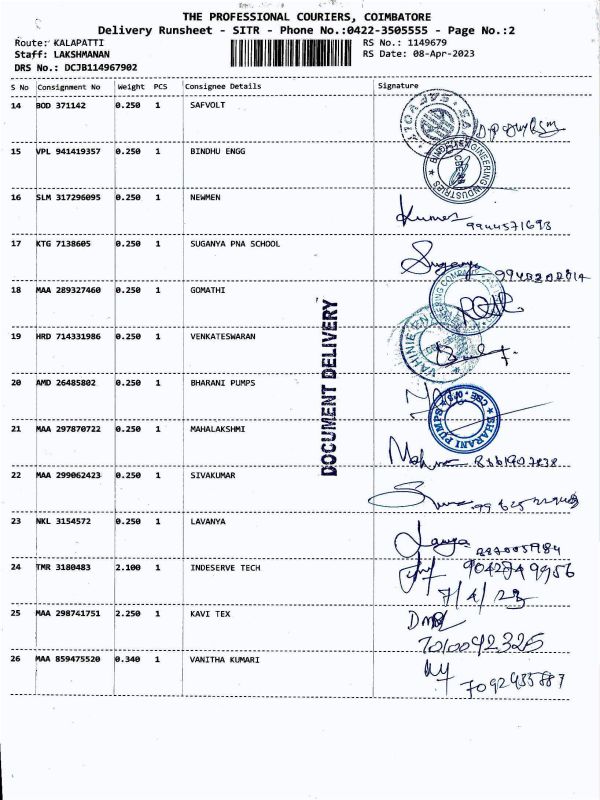 THE PROFESSIONAL COURIERS, COIMBATORE
Delivery Runsheet - SITR - Phone No.:0422-3505555 - Page No.:2
Route: KALAPATTI RS No.: 1149679
Staff: LAKSHMANAN RS Date: 08-Apr-2023
DRS No.: DCJB114967902
S No Consignment No Weight PCS Consignee Details Signature
14 BOD 371142 0.250 1 SAFVOLT
15 VPL 941419357 0.250 1 BINDHU ENGG
16 SLM 317296095 0.250 1 NEWMEN
Kumar 9944571693
17 KTG 7138605 0.250 1 SUGANYA PNA SCHOOL
Suganya
18 MAA 289327460 0.250 1 GOMATHI
19 HRD 714331986 0.250 1 VENKATESWARAN
20 AMD 26485802 0.250 1 BHARANI PUMPS
BHARANI PUMPS
21 MAA 297870722 0.250 1 MAHALAKSHMI
22 MAA 299062423 0.250 1 SIVAKUMAR
23 NKL 3154572 0.250 1 LAVANYA
24 TMR 3180483 2.100 1 INDESERVE TECH
9042749956
7/4/23
25 MAA 298741751 2.250 1 KAVI TEX
7010092325
26 MAA 859475520 0.340 1 VANITHA KUMARI
7092935887
DOCUMENT DELIVERY